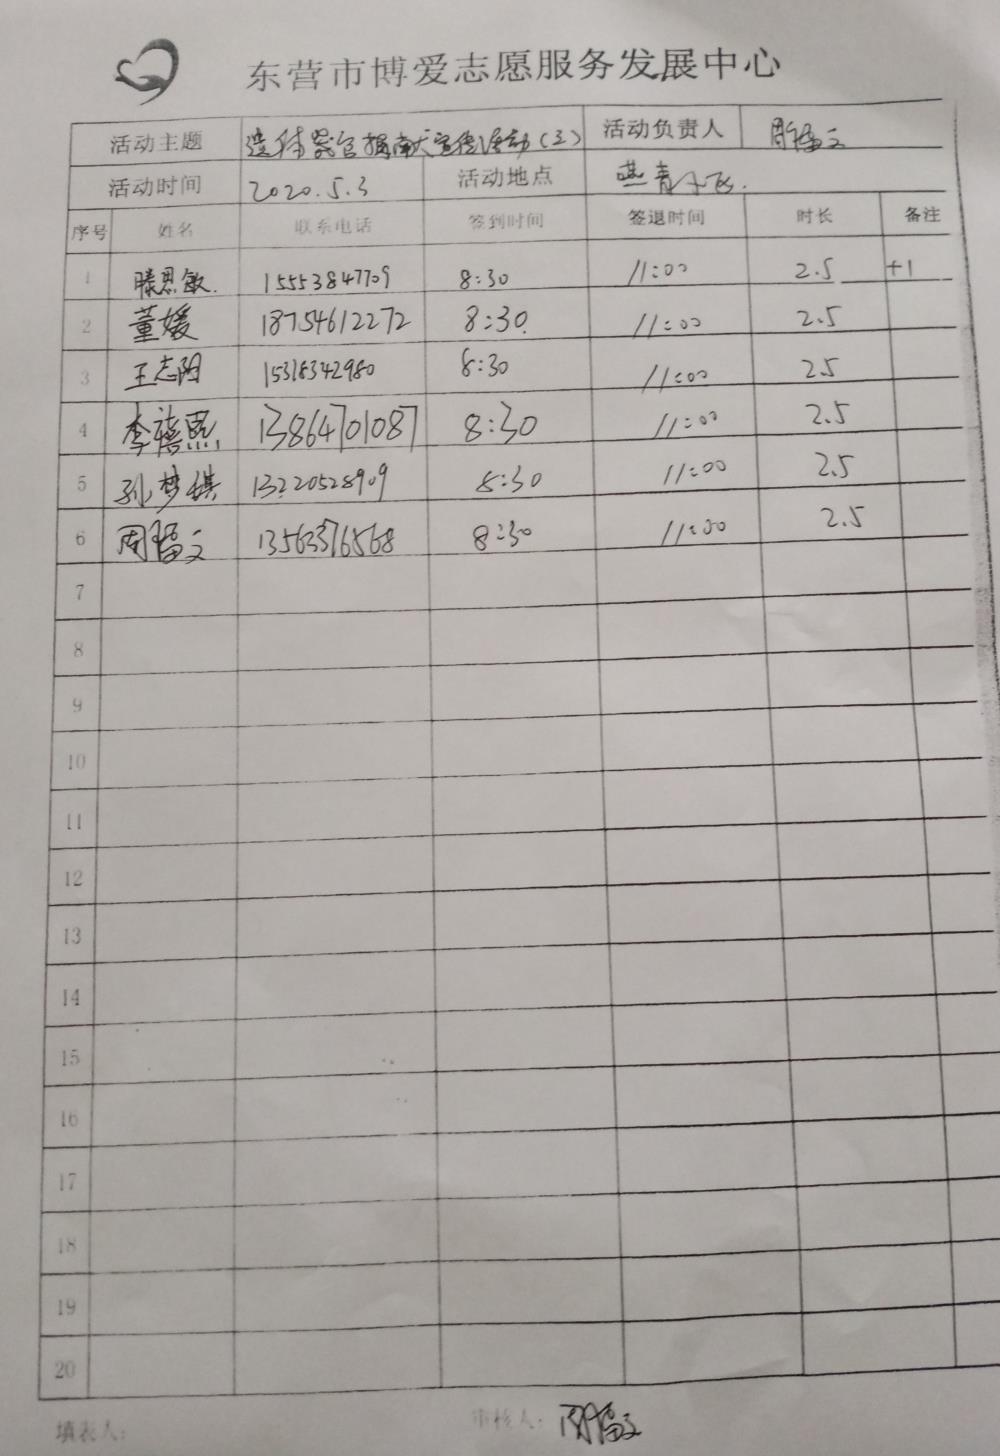 东营市博爱志愿服务发展中心
活动主题 遗体器官捐献宣传活动(三) 活动负责人 周福文
活动时间 2020.5.3 活动地点 燕青
序号 姓名 联系电话 签到时间 签退时间 时长 备注
1 滕恩敏 15553847709 8:30 11:00 2.5 +1
2 董媛 18754612272 8:30 11:00 2.5
3 王志阳 15318342980 8:30 11:00 2.5
4 李禧熙 13864701087 8:30 11:00 2.5
5 孙梦祺 13220528909 8:30 11:00 2.5
6 周福文 13563376568 8:30 11:00 2.5
7
8
9
10
11
12
13
14
15
16
17
18
19
20
填表人: 审核人: 周福文